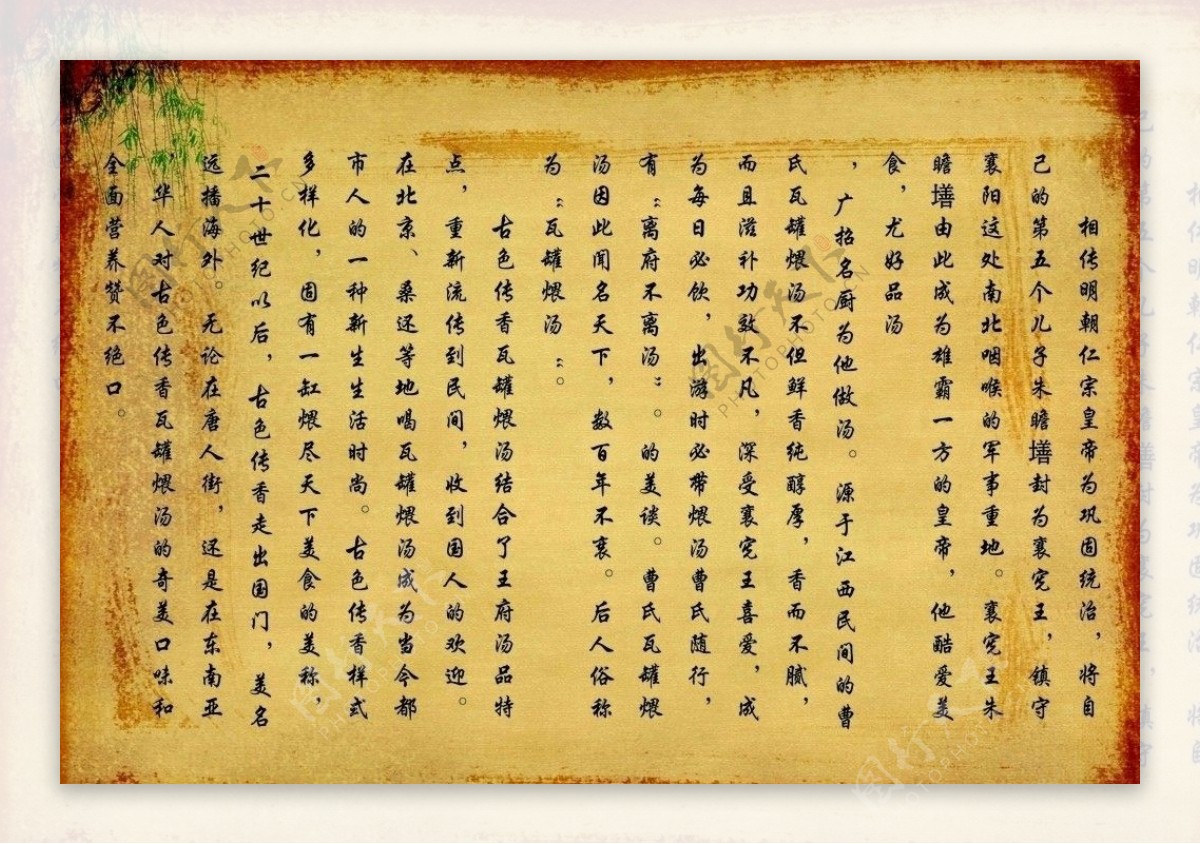 相传明朝仁宗皇帝为巩固统治，将自
己的第五个儿子朱瞻墡封为襄宪王，镇守
襄阳这处南北咽喉的军事重地。襄宪王朱
瞻墡由此成为雄霸一方的皇帝，他酷爱美
食，尤好品汤
，广招名厨为他做汤。源于江西民间的曹
氏瓦罐煨汤不但鲜香纯醇厚，香而不腻，
而且滋补功效不凡，深受襄宪王喜爱，成
为每日必饮，出游时必带煨汤曹氏随行，
有“离府不离汤”。的美谈。曹氏瓦罐煨
汤因此闻名天下，数百年不衰。后人俗称
为“瓦罐煨汤“。
古色传香瓦罐煨汤结合了王府汤品特
点，重新流传到民间，收到国人的欢迎。
在北京、桑还等地喝瓦罐煨汤成为当今都
市人的一种新生生活时尚。古色传香样式
多样化，固有一缸煨尽天下美食的美称，
二十世纪以后，古色传香走出国门，美名
远播海外。无论在唐人街，还是在东南亚
，华人对古色传香瓦罐煨汤的奇美口味和
全面营养赞不绝口。
图行天下
PHOTOPHOTO.CN